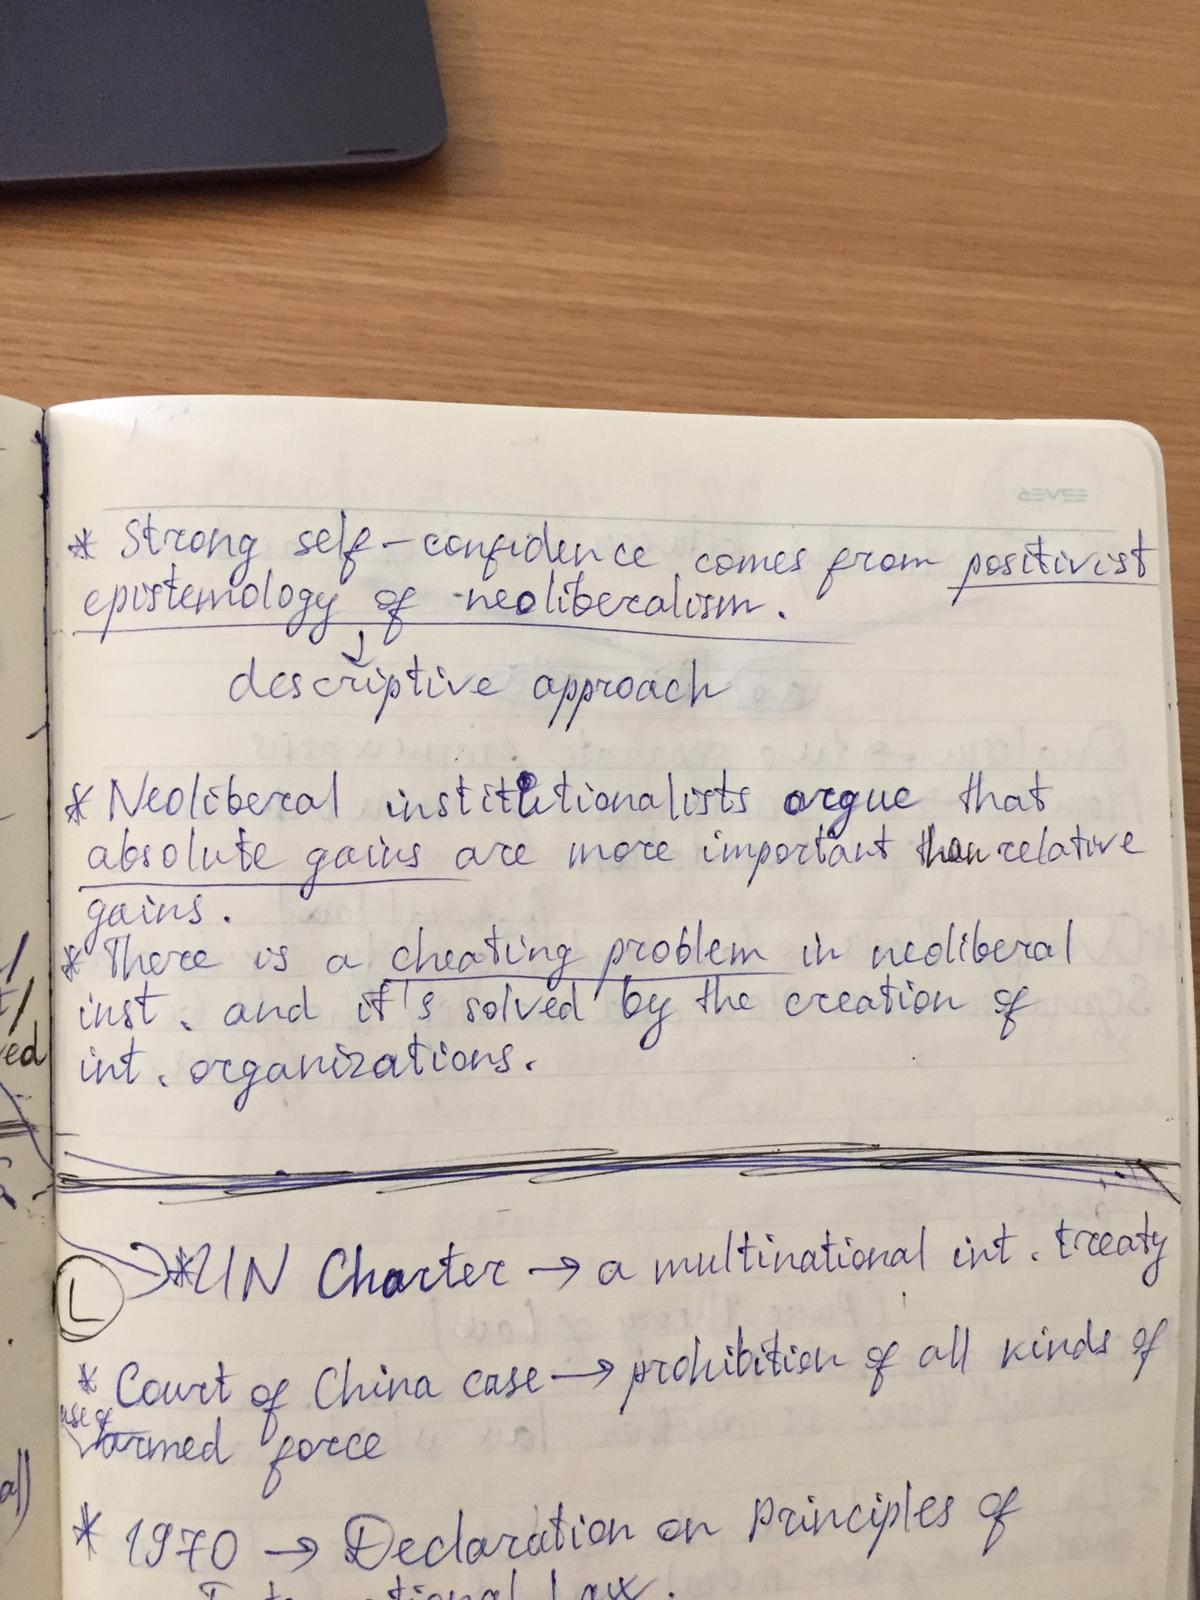 * Strong self-confidence comes from positivist
epistemology of neoliberalism.
↓
descriptive approach
* Neoliberal institutionalists argue that
absolute gains are more important than relative
gains.
* There is a cheating problem in neoliberal
inst. and it's solved by the creation of
int. organizations.
L
* UN Charter → a multinational int. treaty
* Court of China case → prohibition of all kinds of
use of
armed force
* 1970 → Declaration on Principles of
Law.